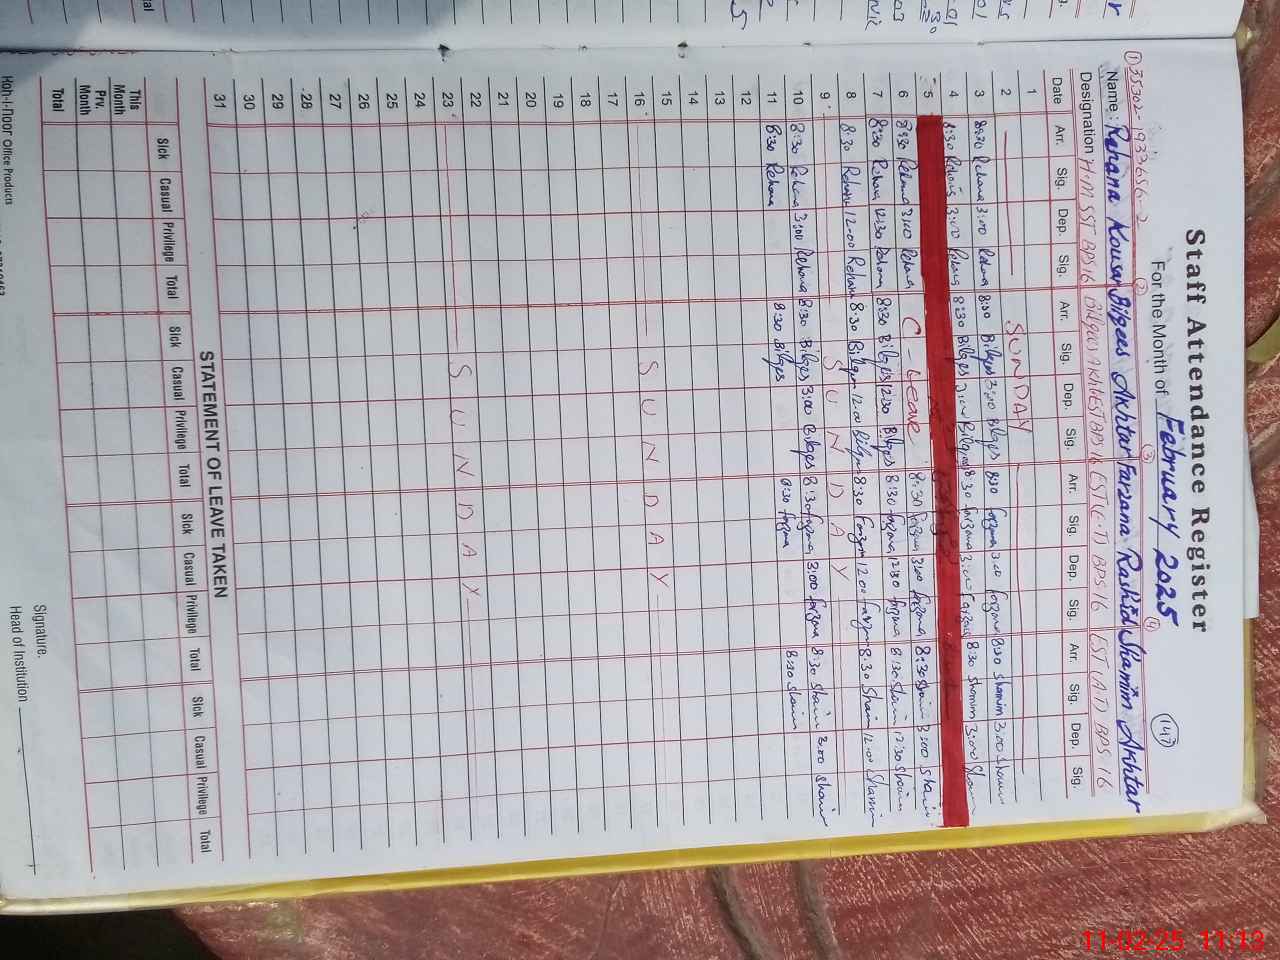 Staff Attendance Register
For the Month of February 2025
147
① 35302-1933656-2 ② ③ ④
Name: Rehana Kousar Bilqees Akhtar Farzana Rashid Shamim Akhtar
Designation H.M SST BPS16 Bilqees Akht EST BPS 16 EST(C.T) BPS 16 EST(A.T) BPS 16
Date Arr. Sig. Dep. Sig. Arr. Sig. Dep. Sig. Arr. Sig. Dep. Sig. Arr. Sig. Dep. Sig.
1
2 SUNDAY
3 8:30 Rehana 3:00 Rehana 8:30 Bilqes 3:00 Bilqes 8:30 farzana 3:00 farzana 8:30 Shamim 3:00 Shamim
4 8:30 Rehana 3:00 Rehana 8:30 Bilqes 3:00 Bilqes 8:30 farzana 3:00 Farzana 8:30 Shamim 3:00 Sham
5
6 8:30 Rehana 3:00 Rehana C-Leave 8:30 farzana 3:00 farzana 8:30 Shaim 3:00 Shaim
7 8:30 Rehana 12:30 Rehana 8:30 Bilqes 12:30 Bilqes 8:30 farzana 12:30 farzana 8:30 Shaim 12:30 Shaim
8 8:30 Rehana 12:00 Rehana 8:30 Bilqes 12:00 Bilqes 8:30 Farzana 12:00 farzana 8:30 Shaim 12:00 Shaim
9 SUNDAY
10 8:30 Rehana 3:00 Rehana 8:30 Bilqes 3:00 Bilqes 8:30 farzana 3:00 farzana 8:30 Shaim 3:00 Shaim
11 8:30 Rehana 8:30 Bilqes 8:30 farzana 8:30 Shaim
12
13
14
15
16 SUNDAY
17
18
19
20
21
22
23 SUNDAY
24
25
26
27
28
29
30
31
STATEMENT OF LEAVE TAKEN
Sick Casual Privilege Total Sick Casual Privilege Total Sick Casual Privilege Total Sick Casual Privilege Total
This Month
Prv. Month
Total
Signature.
Head of Institution
Koh-i-Noor Office Products
11-02-25 11:13